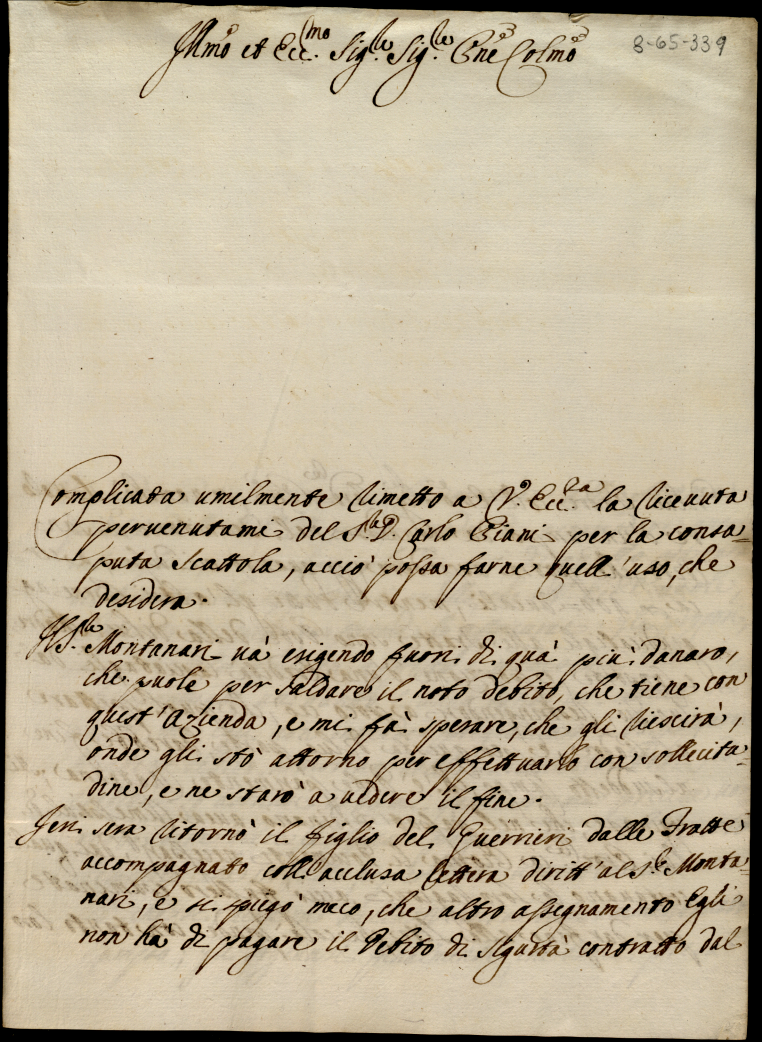 Illmo et Ecc.mo Sig.re Sig.re Pne Colmo
8-65-339
Complicata umilmente rimetto a V. Ecc.za la ricevuta
pervenutami del S.r D. Carlo Piani per la consa=
puta scattola, acciò possa farne quell'uso, che
desidera.
Il S.re Montanari và esigendo fuori di quà più danaro,
che puole per saldare il noto debito, che tiene con
quest'Azienda, e mi fà sperare, che gli riescirà,
onde gli stò attorno per effettuarlo con sollecitu=
dine, e ne starò a vedere il fine.
Jeri sera ritornò il figlio del Guerrieri dalle Fratte
accompagnato coll'acclusa lettera diritt'al S.re Monta=
nari, e si spiegò meco, che altro assegnamento Egli
non hà di pagare il Debito di sigurtà contratto dal